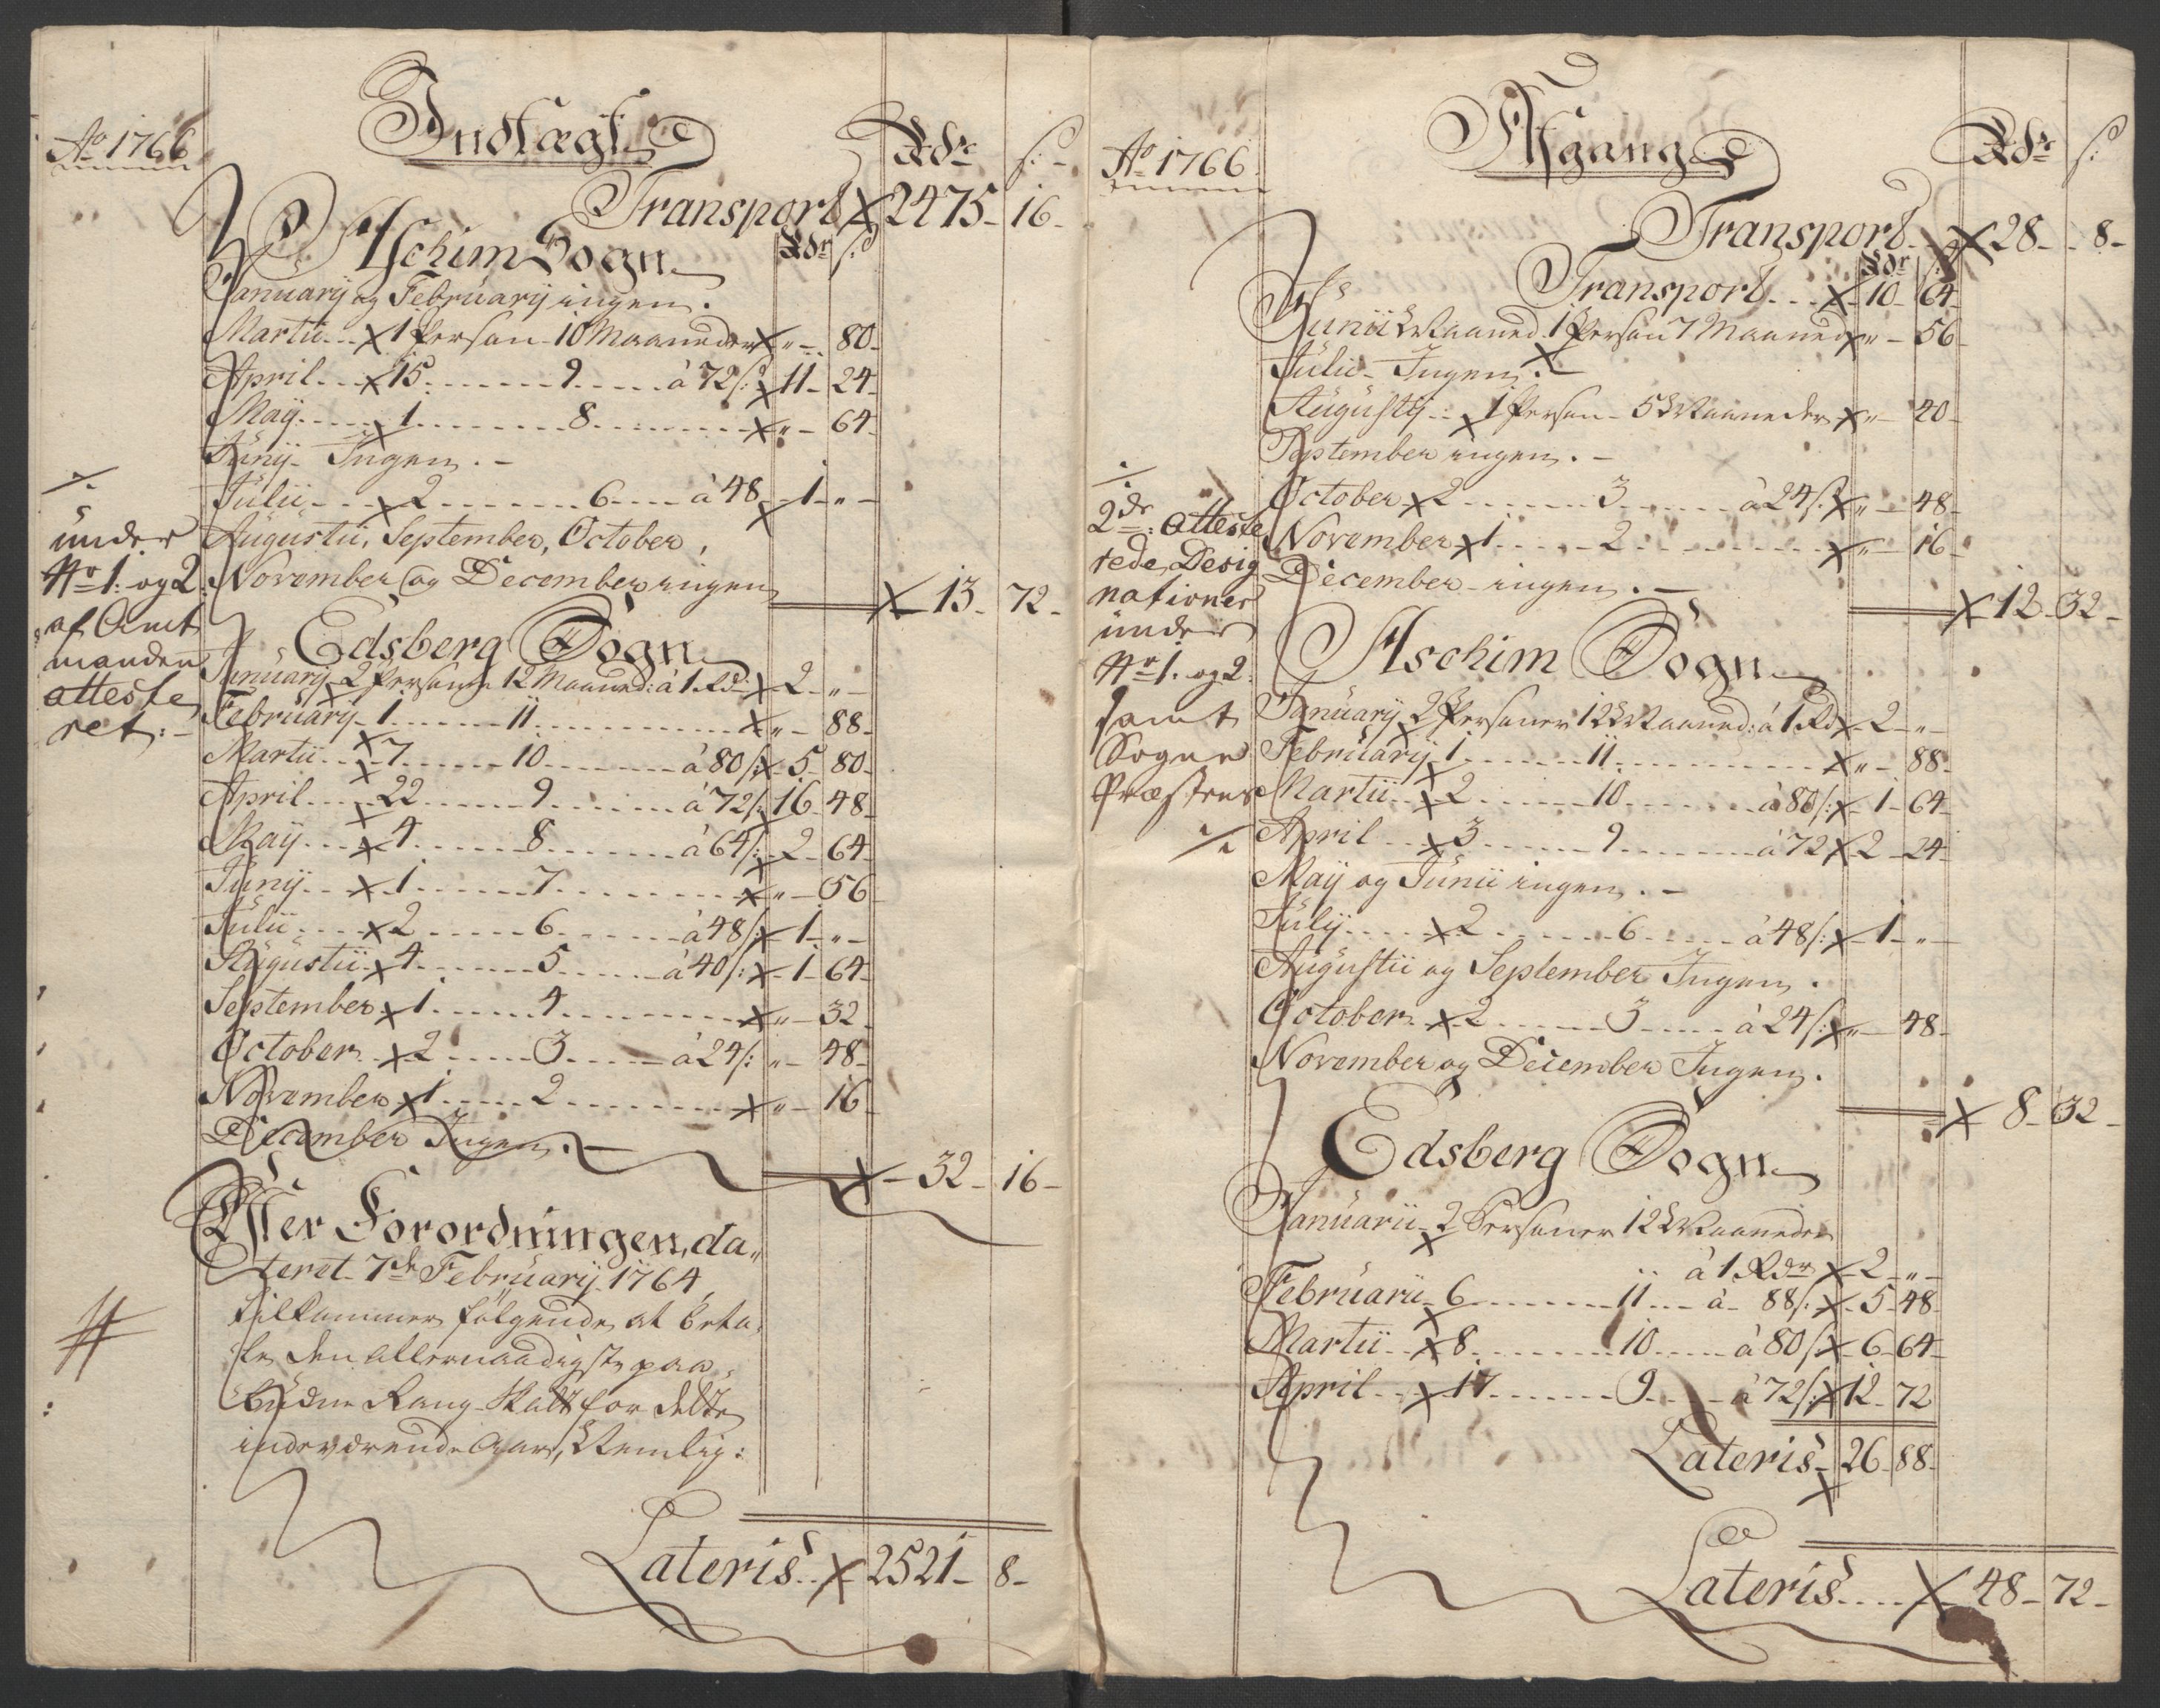 Ao 1766
Indtægt
Rdr s:
Transport x 2475 - 16 -
Aschim Sogn
Rdr s:
Januarij og Februarij ingen.
Martii x 1 Person 10 Maaneder x " - 80 -
April x 15 9 à 72 s: x 11 - 24 -
Maij x 1 8 x " - 64 -
Junij - Ingen. -
Julii x 2 6 à 48 x 1 - " -
Augustii, September, October,
November og December ingen
x 13 - 72 -
./.
under
No 1. og 2.
af Amt
manden
atteste
ret. -
Edsberg Sogn
Januarij 2 Personer 12 Maaned: à 1 Rdr x 2 - " -
Februarij 1 11 x " - 88 -
Martii x 7 10 à 80 s: x 5 - 80 -
April x 22 9 à 72 s: x 16 - 48 -
Maij x 4 8 à 64 s: x 2 - 64 -
Junij x 1 7 x " - 56
Julii x 2 6 à 48 s: x 1 - " -
Augustii x 4 5 à 40 s: x 1 - 64 -
September x 1 4 x " - 32
October x 2 3 à 24 s: " - 48 -
November x 1 2 x " - 16 -
December Ingen. -
x - 32 - 16 -
Efter Forordningen, da„
teret 7de Februarij 1764,
tilkommer følgende at beta„
le den allernaadigste paa„
budne Rang-Skatt for dette
indeværende Aar, Nemlig:
Lateris x 2521 - 8 -
Ao 1766
Afgang
Rdr s:
Transport x 28 - 8 -
Rdr s:
Transport x 10 - 64 -
Junii Maaned 1 Person 7 Maaned x " - 56
Julii - Ingen. -
Augustij x 1 Person - 5 Maaneder x " - 40 -
September ingen. -
October x 2 3 à 24 s: x " - 48 -
November x 1 2 x " - 16 -
December - ingen. -
x 12 - 32 -
./.
2de Atteste
rede Desig
nationer
under
No 1. og 2.
samt
Sogne
Præstens
./.
Aschim Sogn
Januarij 2 Personer 12 Maaned: à 1 Rd x 2 - " -
Februarij 1 11 x " - 88 -
Martii x 2 10 à 80 s: x 1 - 64 -
April x 3 9 à 72 x 2 - 24 -
Maij og Junii ingen. -
Julij x 2 6 à 48 s: x 1 - " -
Augustii og September Ingen.
October x 2 3 à 24 s: x " - 48 -
November og December Ingen.
x 8 - 32 -
Edsberg Sogn
Januarii 2 Personer 12 Maaneder
à 1 Rdr x 2 - " -
Februarii 6 11 à 88 s: x 5 - 48 -
Martii x 8 10 à 80 s: x 6 - 64 -
April x 17 9 à 72 s: x 12 - 72
Lateris 26 - 88 -
Lateris x 48 - 72 -